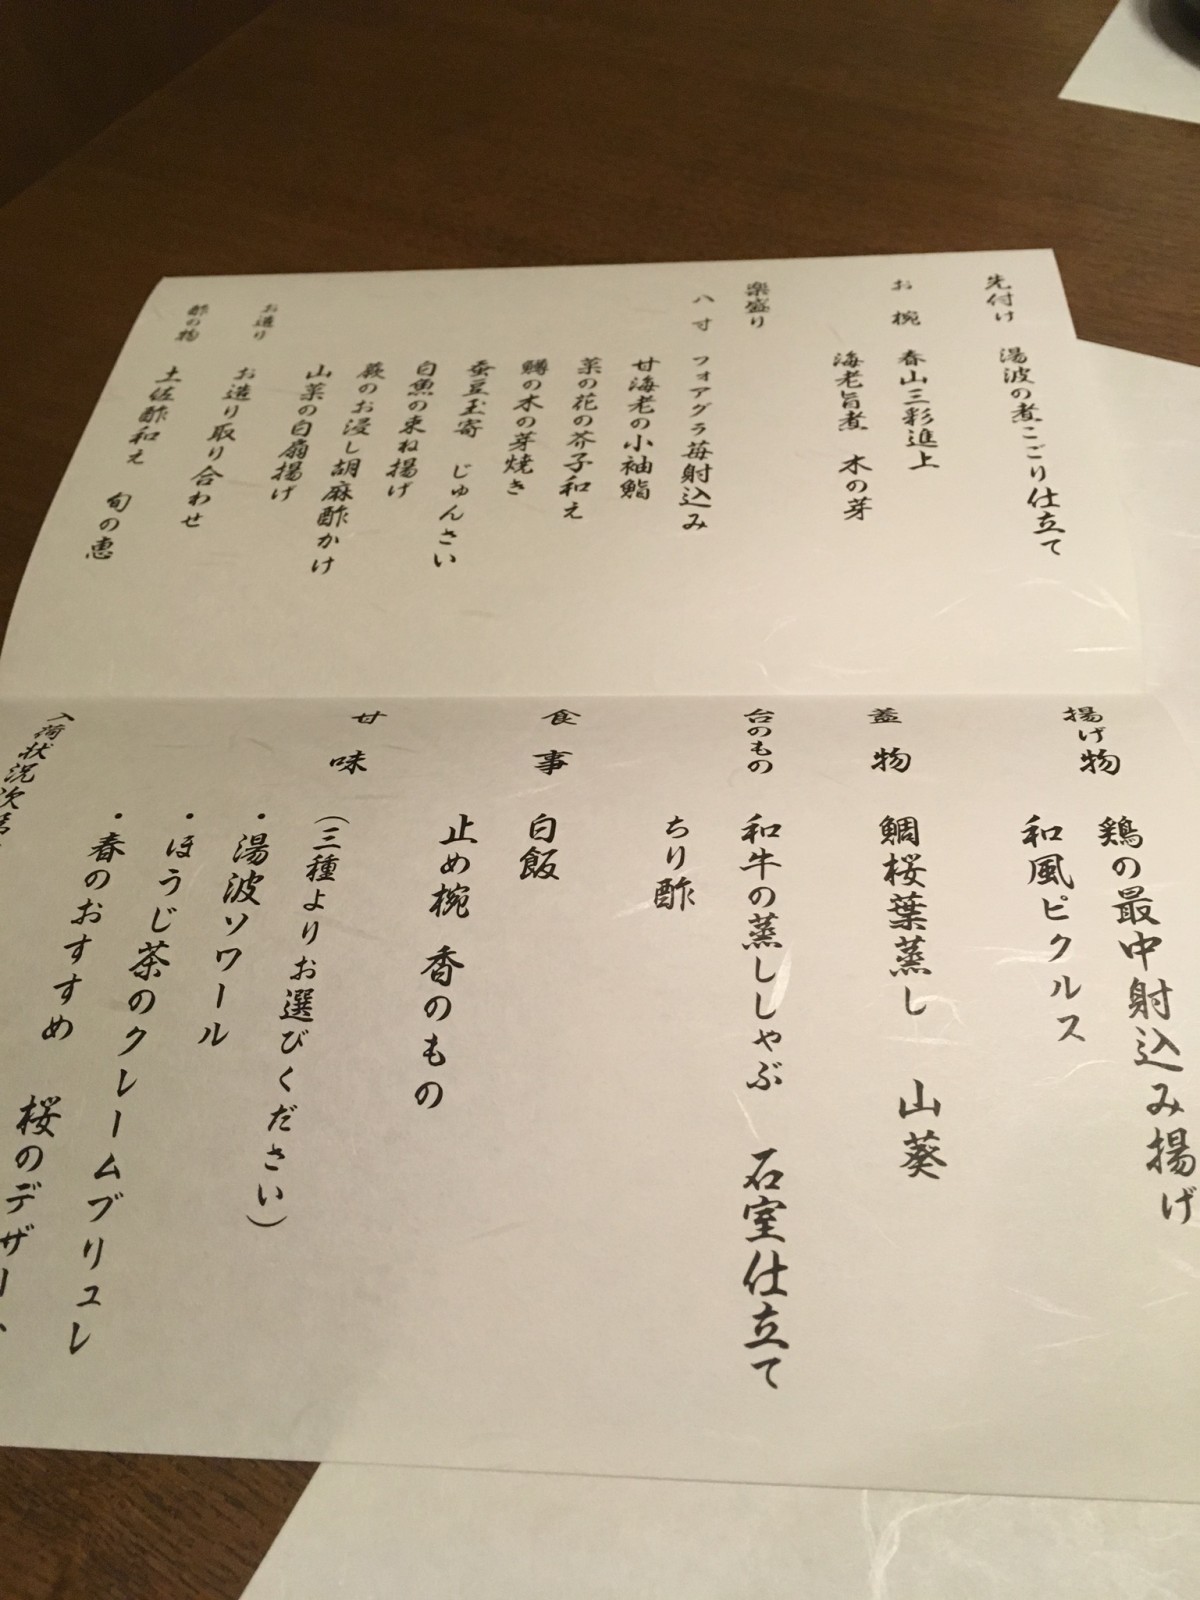 先付け 湯波の煮こごり仕立て
お椀 春山三彩進上
海老旨煮 木の芽
楽盛り
八寸 フォアグラ苺射込み
甘海老の小袖鮨
菜の花の芥子和え
鱒の木の芽焼き
蚕豆玉寄 じゅんさい
白魚の束ね揚げ
蕨のお浸し胡麻酢かけ
山菜の白扇揚げ
お造り お造り取り合わせ
酢の物 土佐酢和え 旬の恵
揚げ物 鶏の最中射込み揚げ
和風ピクルス
蓋物 鯛桜葉蒸し 山葵
台のもの 和牛の蒸ししゃぶ 石室仕立て
ちり酢
食事 白飯
止め椀 香のもの
甘味 (三種よりお選びください)
・湯波ソワール
・ほうじ茶のクレームブリュレ
・春のおすすめ 桜のデザート
入荷状況次第